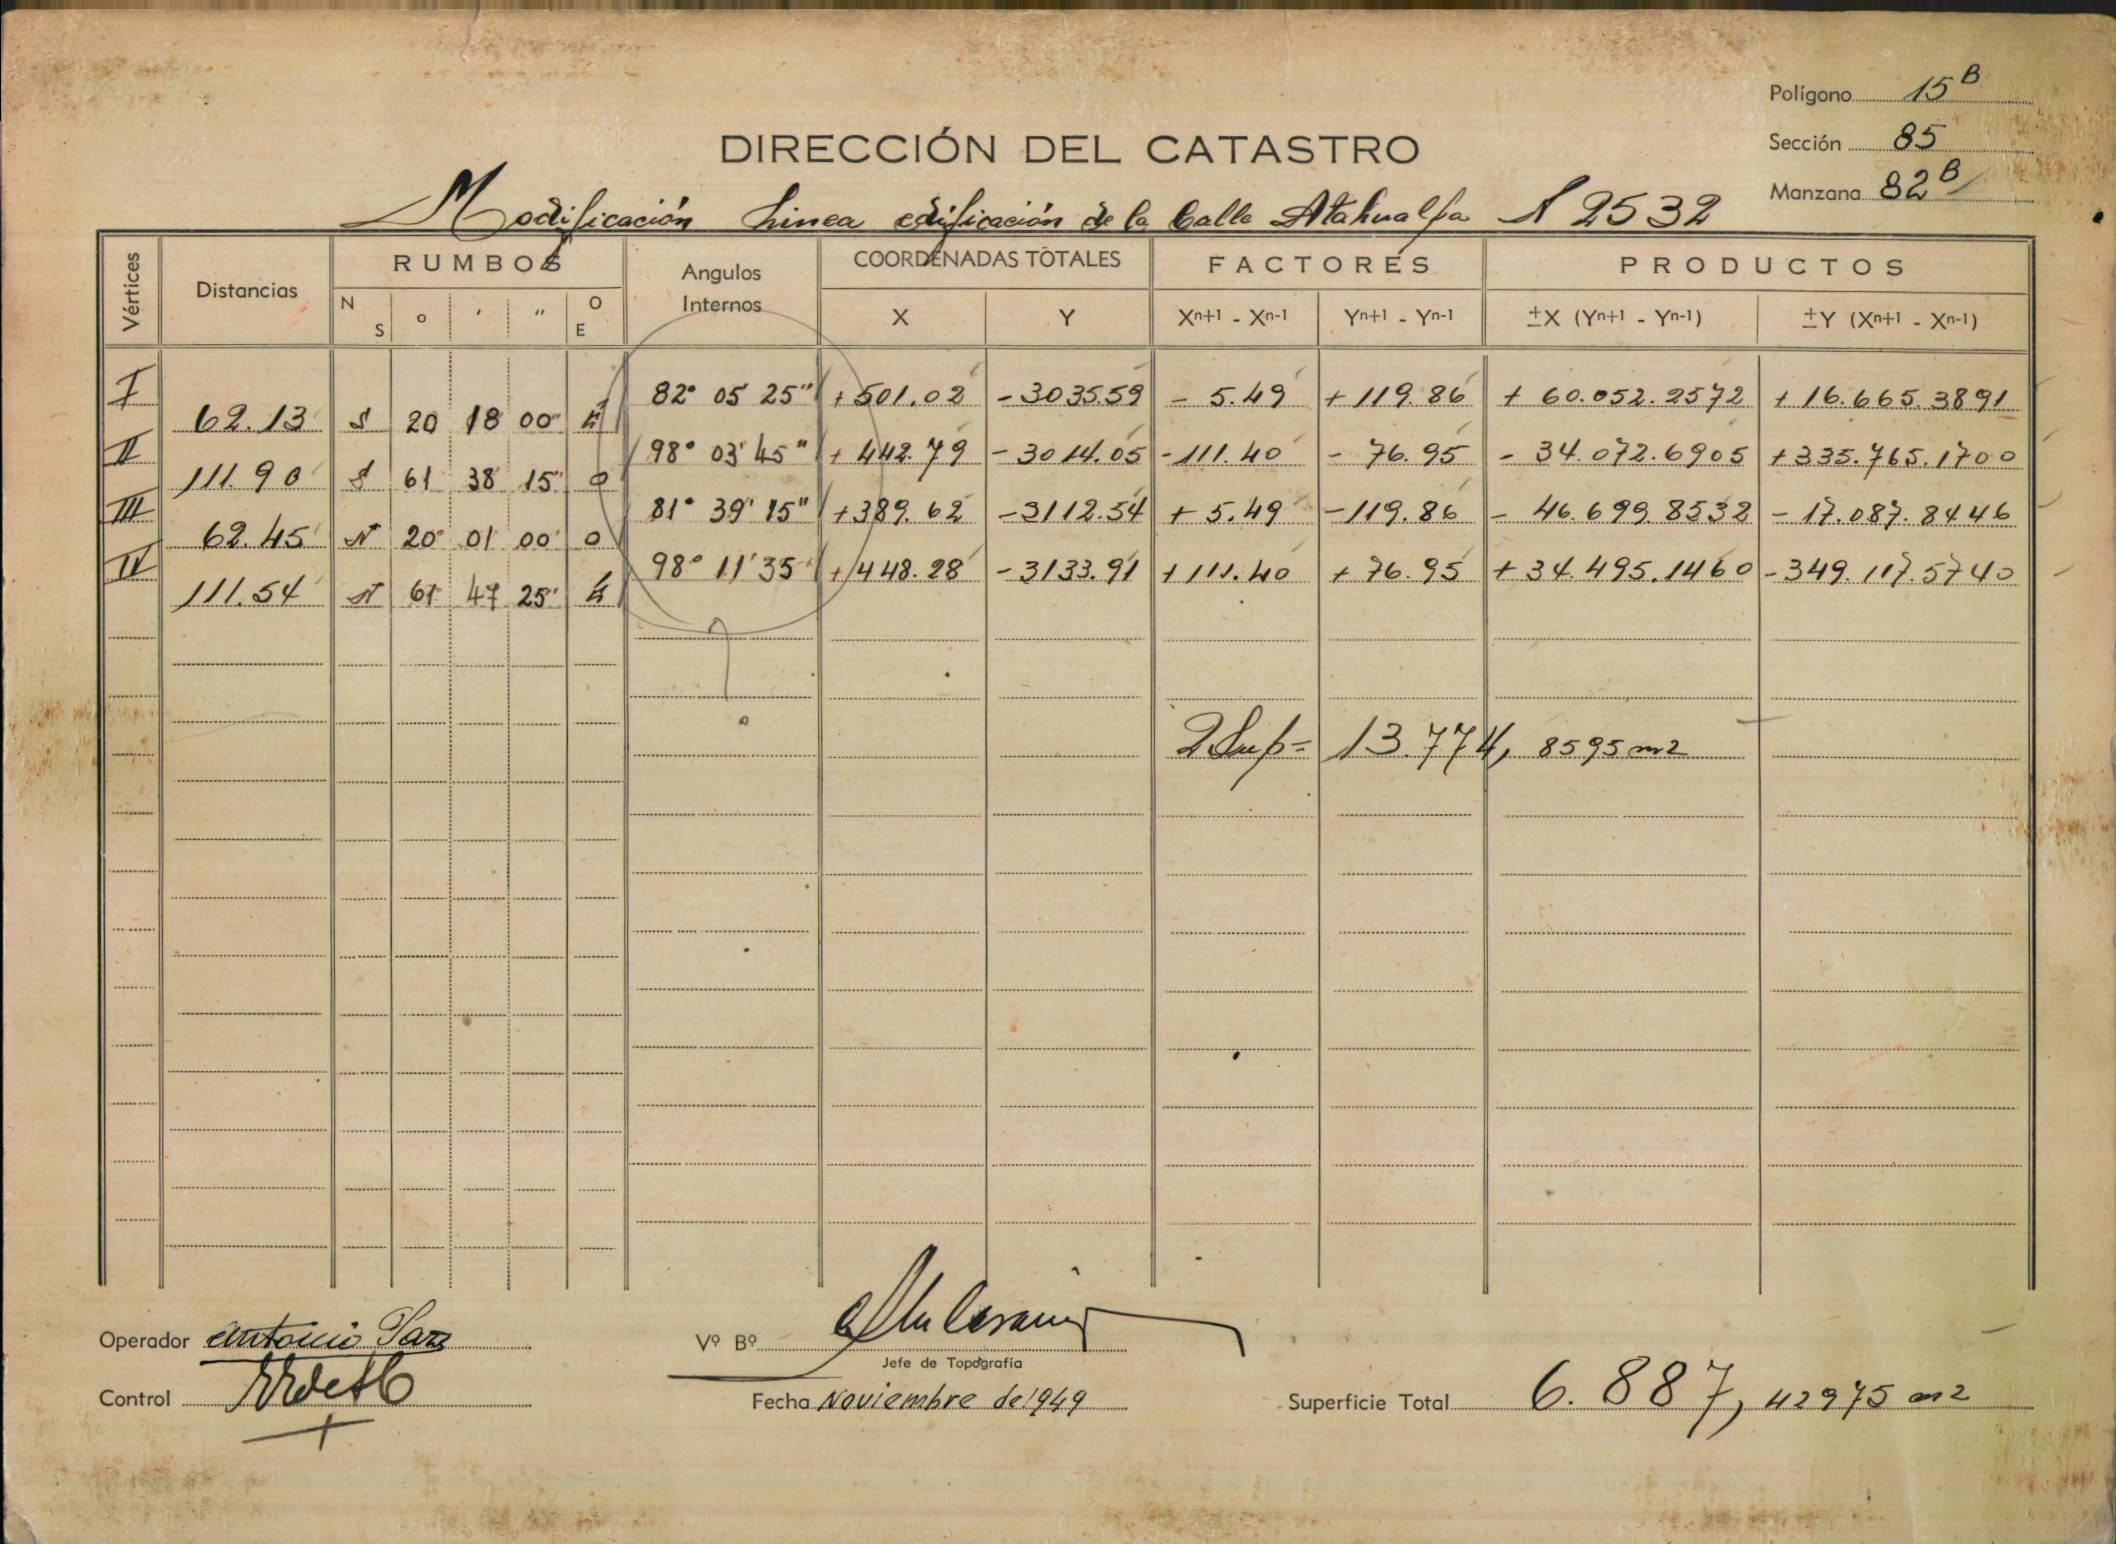 Polígono 15 B
Sección 85
Manzana 82 B
DIRECCIÓN DEL CATASTRO
Modificación Linea edificación de la Calle Atahualpa N 2532
Vértices Distancias RUMBOS Angulos Internos COORDENADAS TOTALES FACTORES PRODUCTOS
N S o ' " O E X Y Xn+1 - Xn-1 Yn+1 - Yn-1 ±X (Yn+1 - Yn-1) ±Y (Xn+1 - Xn-1)
I 82° 05 25" +501.02 -3035.59 - 5.49 +119.86 + 60.052.2572 + 16.665.3891
62.13 S 20 18 00" E
II 98° 03' 45" + 442.79 -3014.05 -111.40 - 76.95 - 34.072.6905 +335.765.1700
111.90 S 61 38 15" O
III 81° 39' 15" +389.62 -3112.54 + 5.49 -119.86 - 46.699.8532 - 17.087.8446
62.45 N 20° 01 00" O
IV 98° 11' 35 +448.28 -3133.91 +111.40 + 76.95 + 34.495.1460 -349.117.5740
111.54 N 61 47 25" E
2Sup= 13.774, 8595 m2
Operador Antonio
Vº Bº
Jefe de Topografía
Control
Fecha Noviembre de 1949
Superficie Total 6.887, 42975 m2